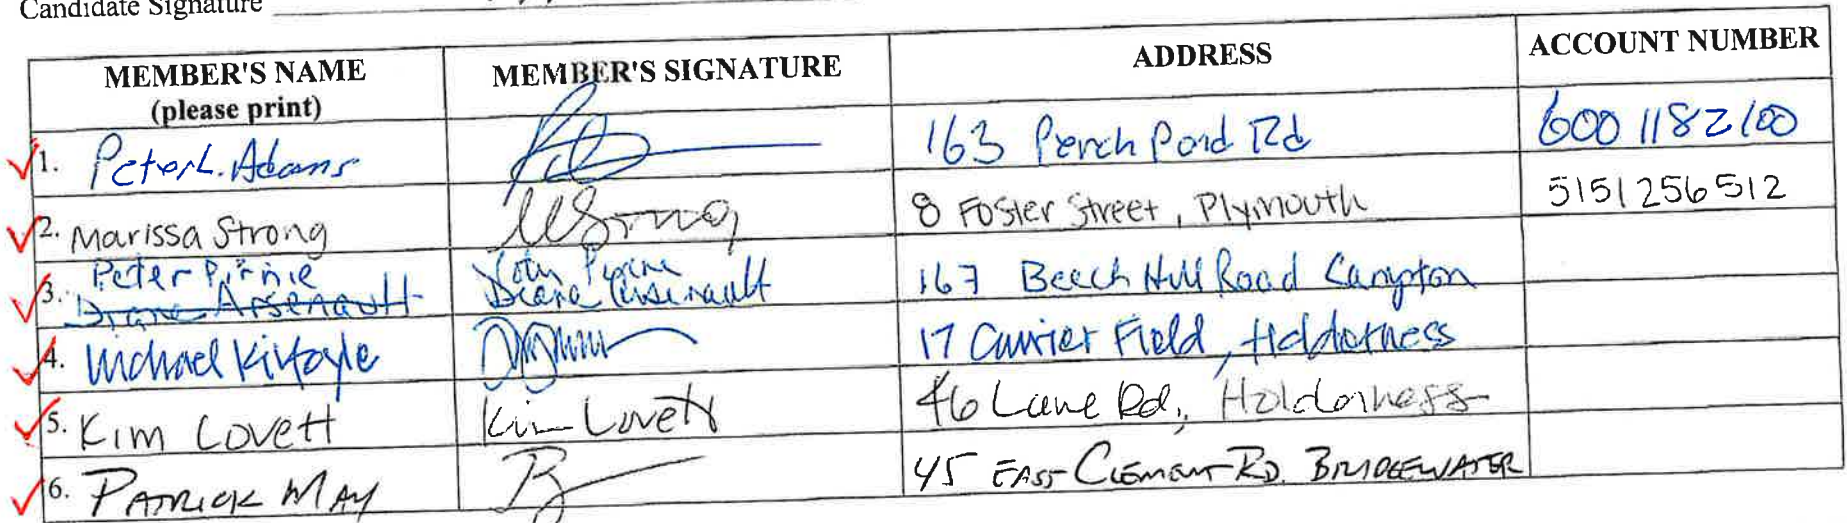 Candidate Signature
MEMBER'S NAME (please print) MEMBER'S SIGNATURE ADDRESS ACCOUNT NUMBER
1. Peter L. Adams 163 Perch Pond Rd 6001182100
2. Marissa Strong MStrong 8 Foster Street, Plymouth 5151256512
3. Peter Pirnie
Diane Arsenault Diane Arsenault 167 Beech Hill Road Campton
4. Michael Kilfoyle 17 Currier Field, Holderness
5. Kim Lovett Kim Lovett 46 Lane Rd., Holderness
6. PATRICK MAY 45 EAST CLEMENT RD. BRIDGEWATER